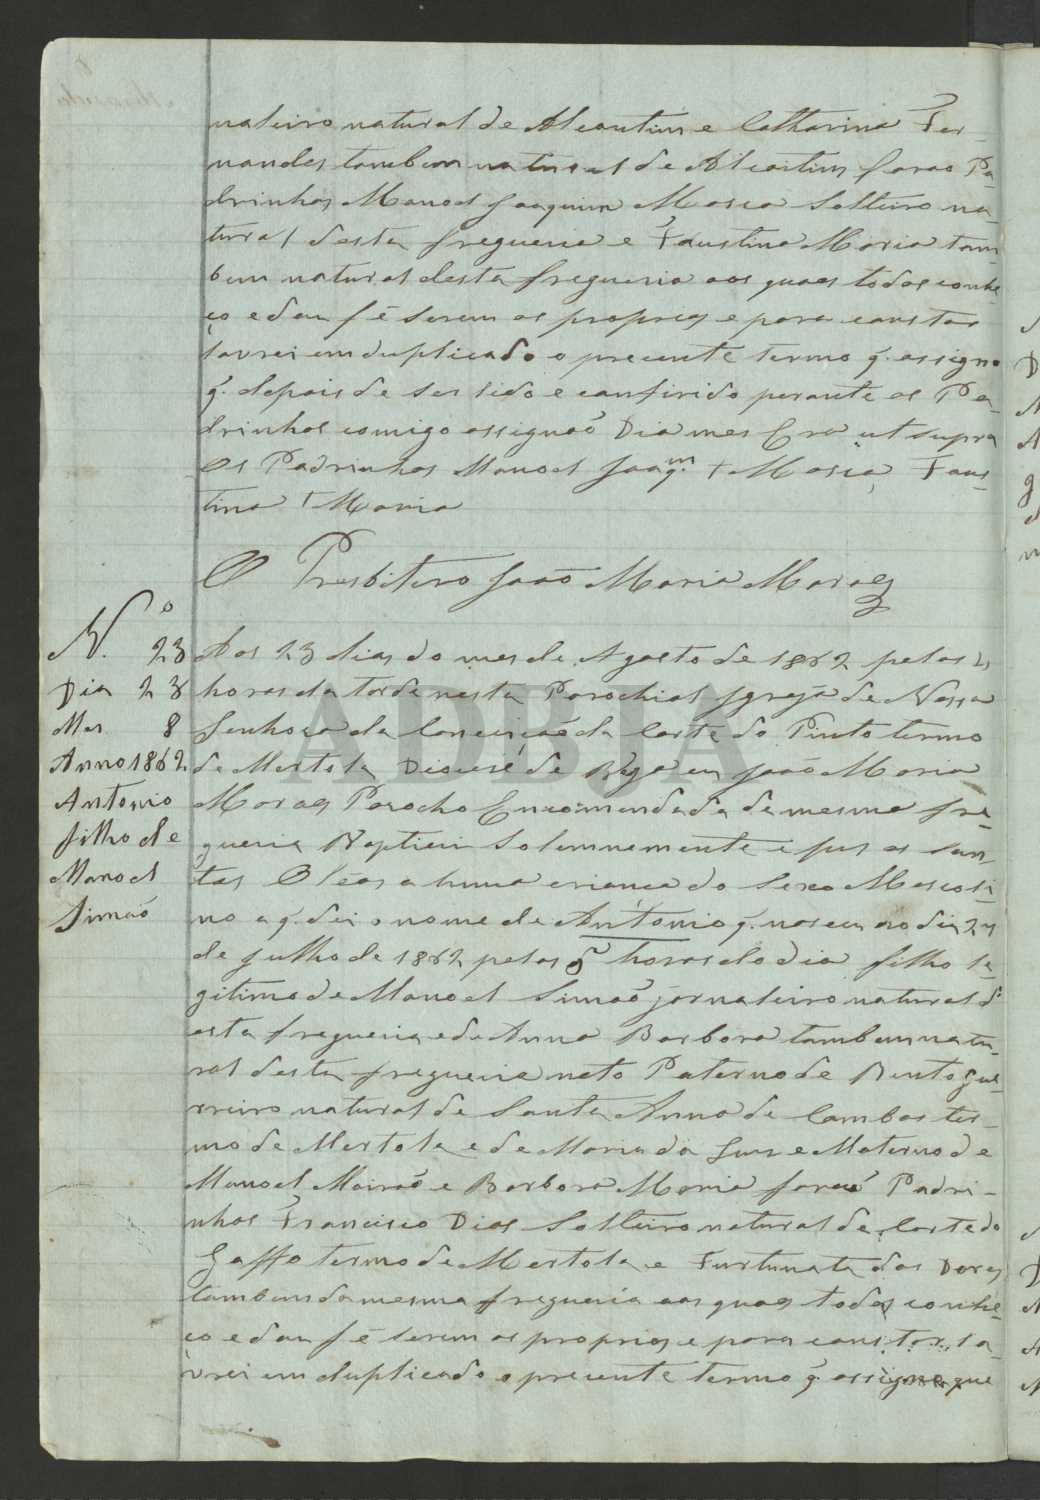 naleiro natural de Alcoutim e Catharina Fer-
nandes tambem natural de Alcoutim forao Pa-
drinhos Manoel Joaquim Maria Solteiro na-
tural desta freguesia e Faustina Maria tam-
bem natural desta freguesia aos quaes todos conhe-
ço e dou fé serem os proprios e para constar
lavrei em duplicado o precente termo q. assigno
q. depois de ser lido e confirido perante os Pa-
drinhos comigo assignaõ Dia mes Era ut supra
Os Padrinhos Manoel Joaqm. + Maria, Faus-
tina + Maria
O Presbitero Joaõ Maria Moraes
N.o 23
Dia 23
Mes 8
Anno 1862
Antonio
filho de
Manoel
Simaõ
Aos 23 dias do mes de Agosto de 1862 pelas 4
horas da tarde nesta Parochial Igreja de Nossa
Senhora da Conceiçaõ da Corte do Pinto termo
de Mertola Diocese de Beja eu Joaõ Maria
Moraes Parocho Encomendado da mesma fre-
guesia Baptizei Solemnemente e pus os San-
tos Oleos a huma criança do Sexo Masculi-
no a q. dei o nome de Antonio q. nasceu no dia 24
de Julho de 1862 pelas 5 horas do dia filho le-
gitimo de Manoel Simaõ jornaleiro natural d'
esta freguesia e de Anna Barbora tambem natu-
ral desta freguesia neto Paterno de Bento Gue-
rreiro natural de Santa Anna de Cambas ter-
mo de Mertola e de Maria da Luz e Materno de
Manoel e Barbora Maria foraõ Padri-
nhos Francisco Dias Solteiro natural de Corte do
Gaffo termo de Mertola e Furtunata das Dores
tambem da mesma freguesia aos quaes todos conhe-
ço e dou fé serem os proprios e para constar la-
vrei em duplicado o precente termo q. assigno que
ADBJA